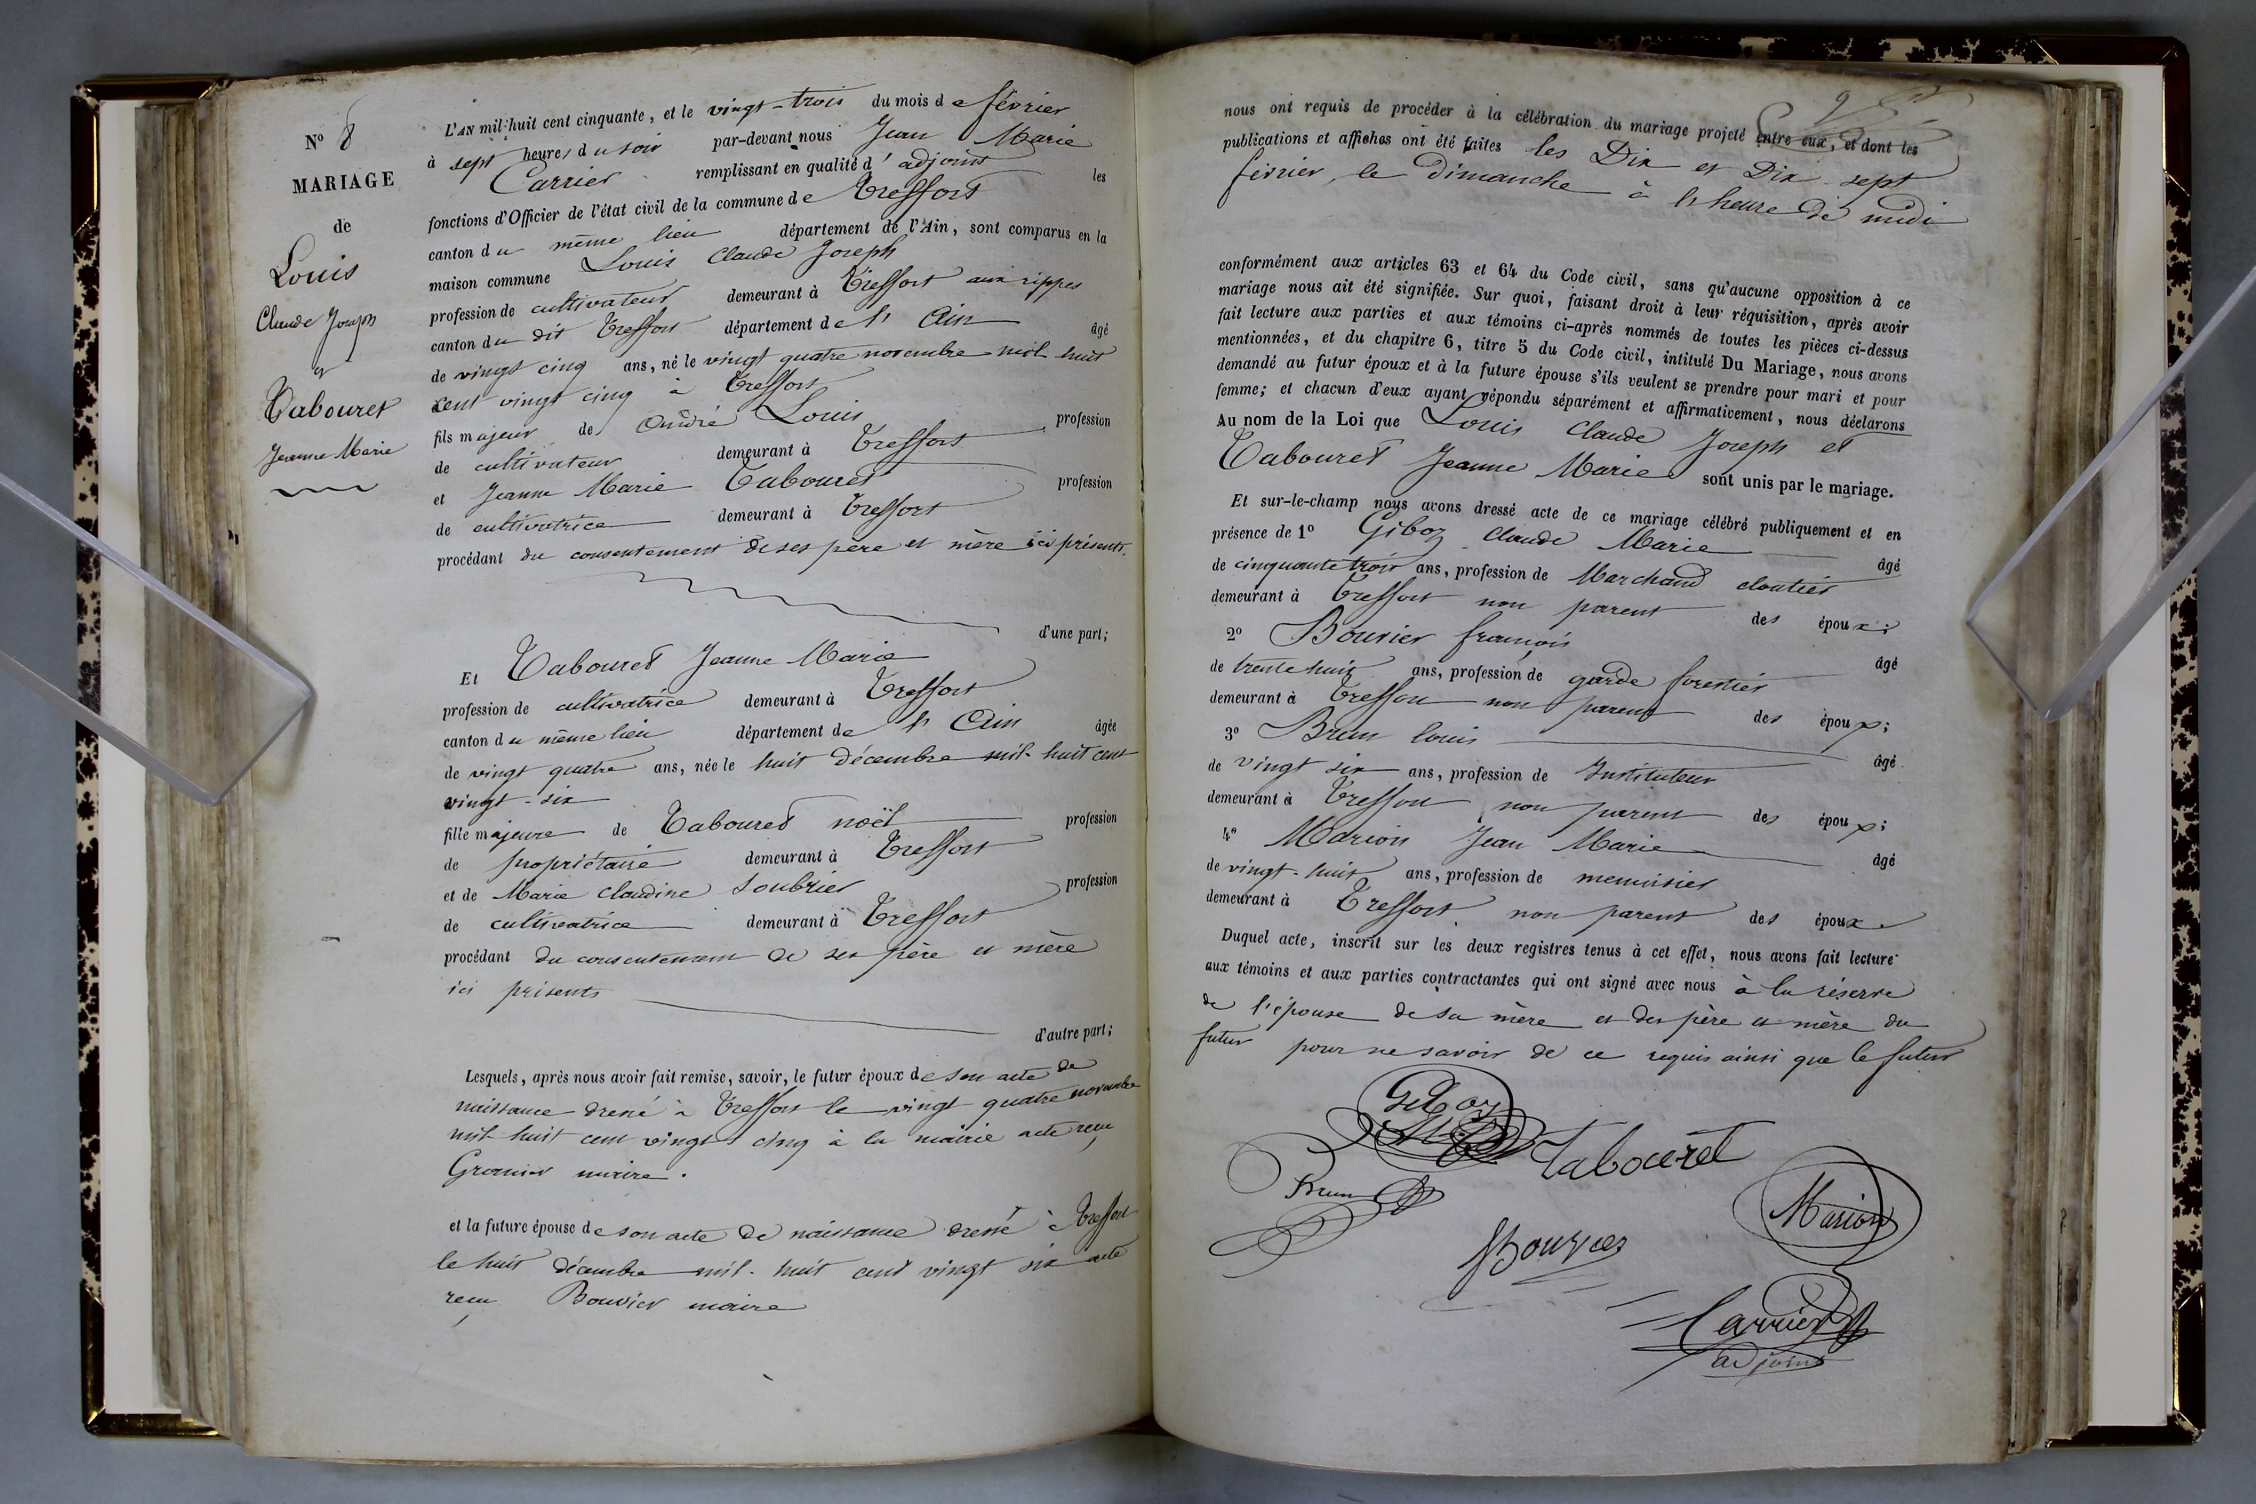 N° 8
MARIAGE
de
Louis
Claude Joseph
et
Tabouret
Jeanne Marie
L'AN mil huit cent cinquante, et le vingt-trois du mois de février
à sept heures du soir par-devant nous Jean Marie
Carrier remplissant en qualité d'adjoint les
fonctions d'Officier de l'état civil de la commune de Treffort
canton du même lieu département de l'Ain, sont comparus en la
maison commune Louis Claude Joseph
profession de cultivateur demeurant à Treffort aux rippes
canton du dit Treffort département de l'Ain âgé
de vingt cinq ans, né le vingt quatre novembre mil huit
cent vingt cinq à Treffort
fils majeur de André Louis profession
de cultivateur demeurant à Treffort
et Jeanne Marie Tabouret profession
de cultivatrice demeurant à Treffort
procédant du consentement de ses père et mère ici présents.
d'une part;
Et Tabouret Jeanne Marie
profession de cultivatrice demeurant à Treffort
canton du même lieu département de l'Ain âgée
de vingt quatre ans, née le huit décembre mil-huit cent
vingt-six
fille majeure de Tabouret noël profession
de propriétaire demeurant à Treffort
et de Marie Claudine Soubrier profession
de cultivatrice demeurant à Treffort
procédant du consentement de ses père et mère
ici présents
d'autre part;
Lesquels, après nous avoir fait remise, savoir, le futur époux de son acte de
naissance dressé à Treffort le vingt quatre novembre
mil-huit cent vingt cinq à la mairie acte reçu
maire.
et la future épouse de son acte de naissance dressé à Treffort
le huit décembre mil-huit cent vingt six acte
reçu Bouvier maire
nous ont requis de procéder à la célébration du mariage projeté entre eux, et dont les
publications et affiches ont été faites les Dix et Dix-sept
février, le dimanche à l'heure de midi
conformément aux articles 63 et 64 du Code civil, sans qu'aucune opposition à ce
mariage nous ait été signifiée. Sur quoi, faisant droit à leur réquisition, après avoir
fait lecture aux parties et aux témoins ci-après nommés de toutes les pièces ci-dessus
mentionnées, et du chapitre 6, titre 5 du Code civil, intitulé Du Mariage, nous avons
demandé au futur époux et à la future épouse s'ils veulent se prendre pour mari et pour
femme; et chacun d'eux ayant répondu séparément et affirmativement, nous déclarons
Au nom de la Loi que Louis Claude Joseph et
Tabouret Jeanne Marie sont unis par le mariage.
Et sur-le-champ nous avons dressé acte de ce mariage célébré publiquement et en
présence de 1° Giboz Claude Marie âgé
de cinquante trois ans, profession de Marchand cloutier
demeurant à Treffort non parent des époux;
2° Bouvier françois âgé
de trente huit ans, profession de garde forestier
demeurant à Treffort non parent des époux;
3° Brun louis âgé
de vingt six ans, profession de Instituteur
demeurant à Treffort non parent des époux;
4° Marion Jean Marie âgé
de vingt-huit ans, profession de menuisier
demeurant à Treffort non parent des époux.
Duquel acte, inscrit sur les deux registres tenus à cet effet, nous avons fait lecture
aux témoins et aux parties contractantes qui ont signé avec nous à la réserve
de l'épouse de sa mère et des père et mère du
futur pour ne savoir de ce requis ainsi que le futur
Giboz
Tabouret
Brun
Marion
Bouvier
Carrier
adjoint